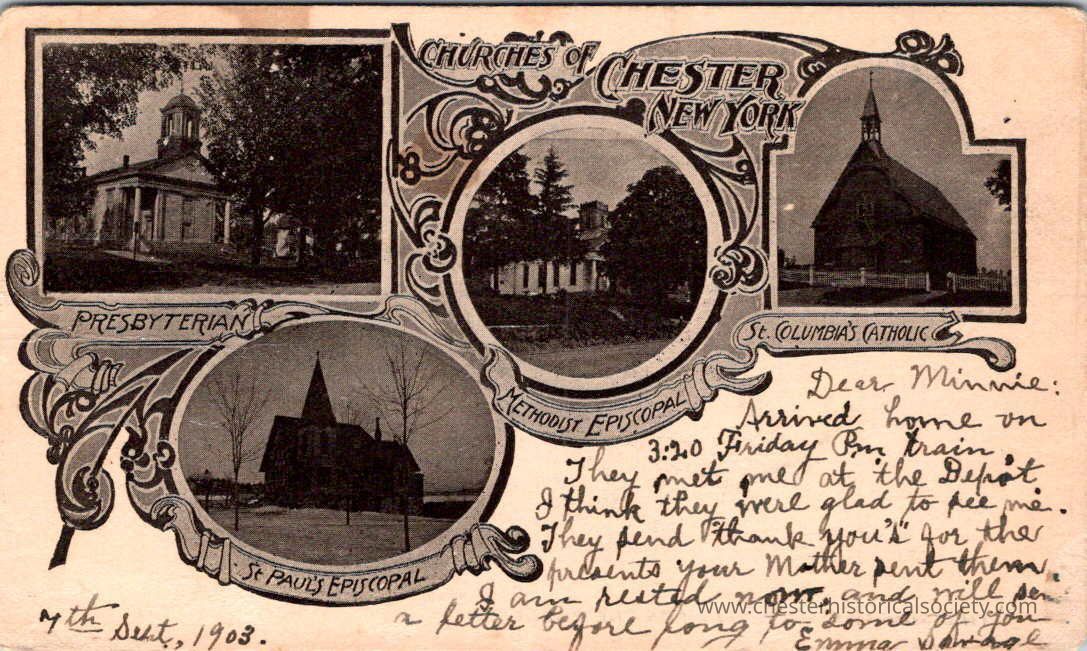 CHURCHES OF
CHESTER
NEW YORK
PRESBYTERIAN
METHODIST EPISCOPAL
ST. COLUMBIA'S CATHOLIC
ST PAUL'S EPISCOPAL
Dear Minnie:
Arrived home on
3:20 Friday P.m train.
They met me at the Depot
I think they were glad to see me.
They send "thank you's" for the
presents your Mother sent them.
I am rested now, and will sen
a letter before long to some of you
Emma
7th Sept, 1903.
www.chesterhistoricalsociety.com